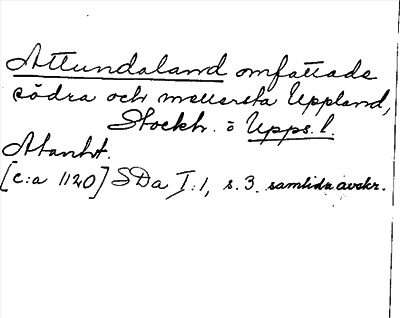 Attundaland omfattade
södra och mellersta Uppland,
Stockh. o Upps. l.
Atanht.
[c:a 1120] SDa I:1, s. 3. samtida avskr.